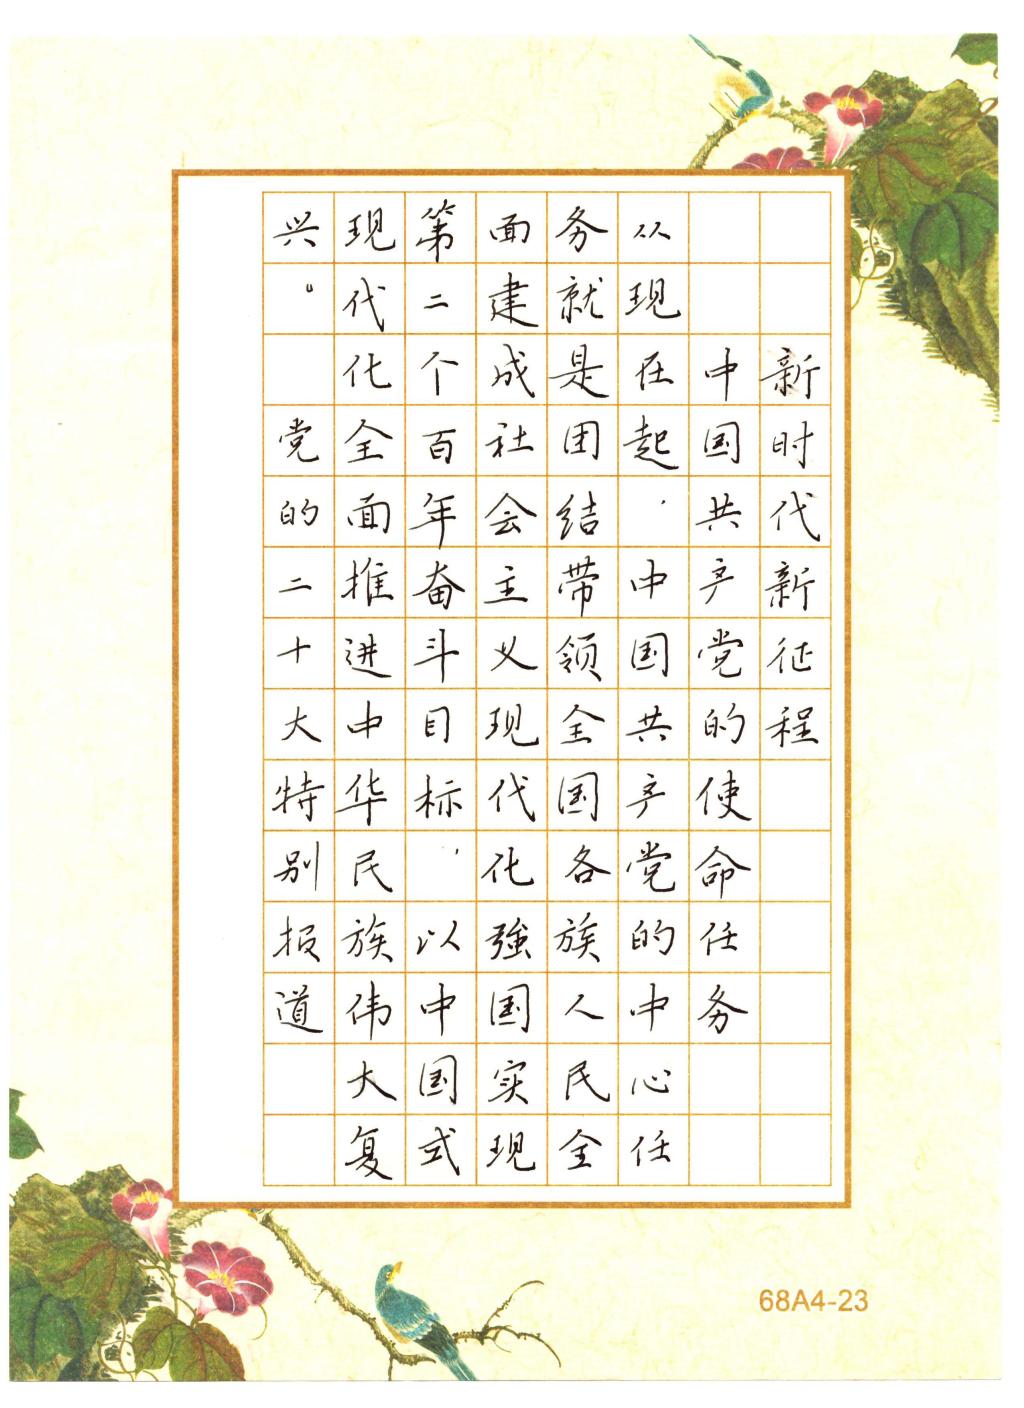 新时代新征程
中国共产党的使命任务
从现在起，中国共产党的中心任
务就是团结带领全国各族人民全
面建成社会主义现代化強国实现
第二个百年奋斗目标，以中国式
现代化全面推进中华民族伟大复
兴。党的二十大特别报道
68A4-23